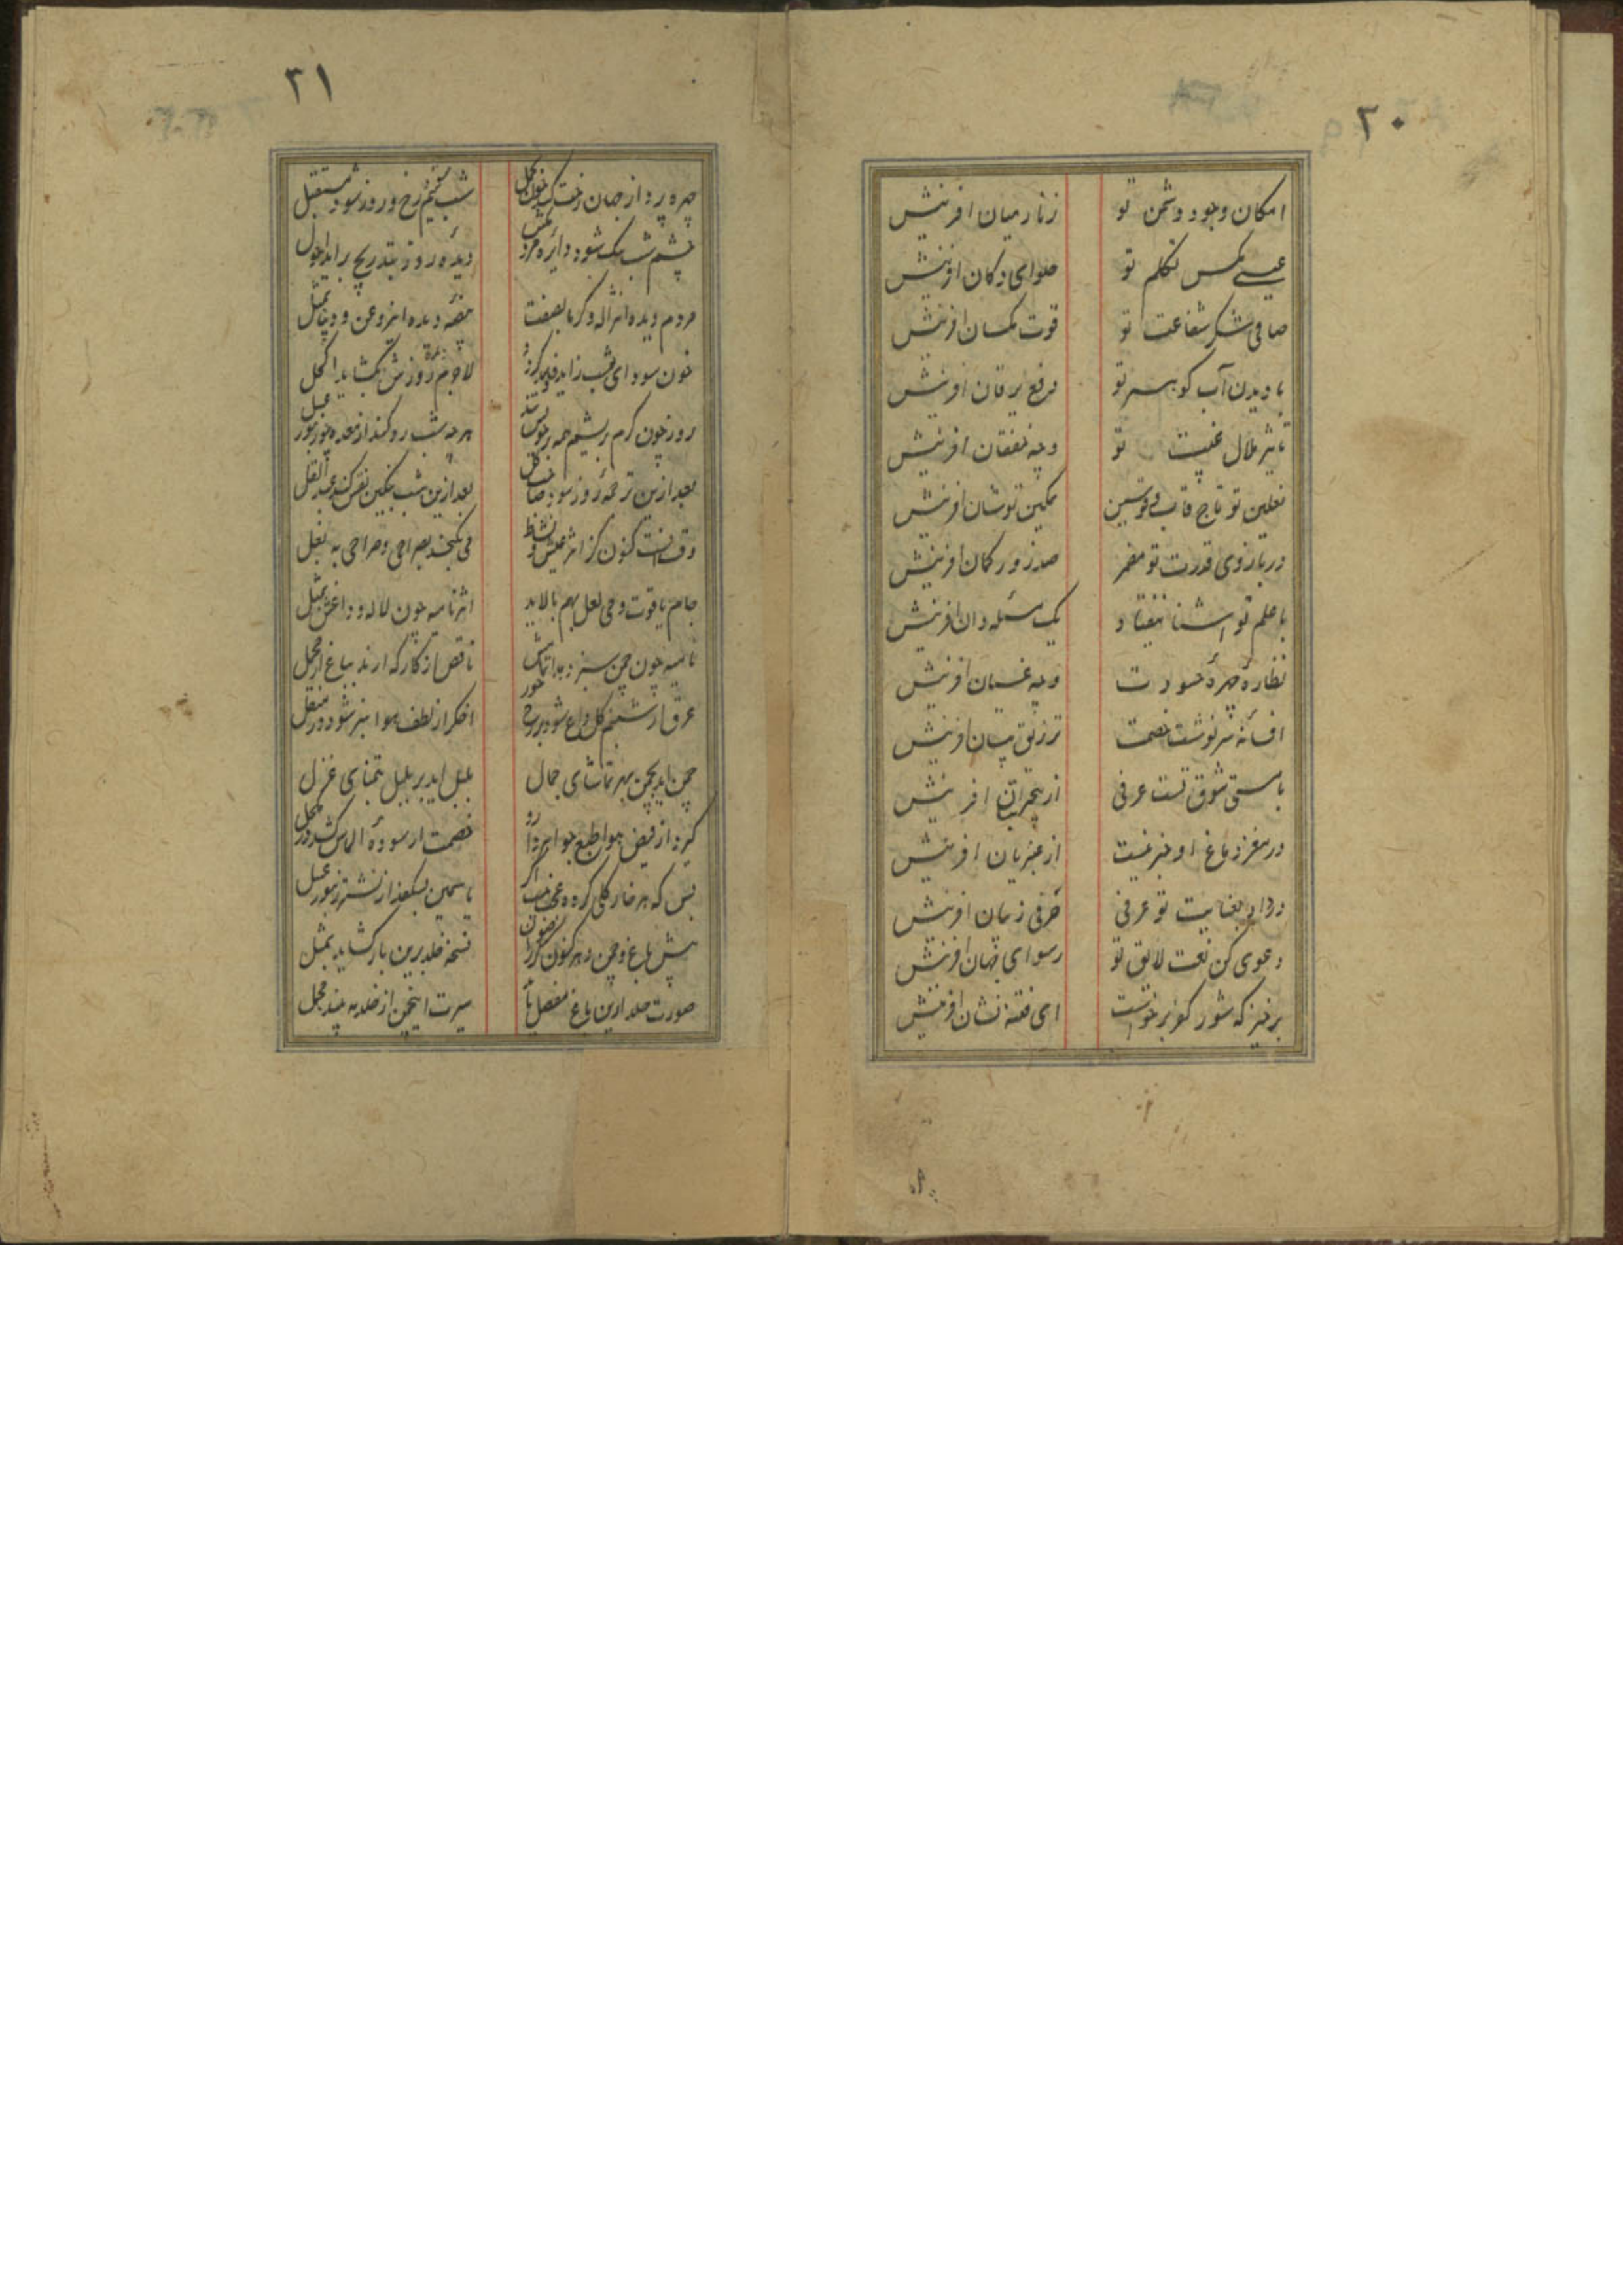 ۲۰
امکان وجود دشمن تو
زنار میان افرینش
عیسی مکس تکلم تو
حلوای دکان افرینش
صافی شکر شفاعت تو
قوت مکسان افرینش
با دیدن آب کوهر تو
رفع یرقان افرینش
تاثیر ملال غیبت تو
وجه خفقان افرینش
نعلین تو تاج قاب قوسین
تمکین تو شان افرینش
در بازوی قدرت تو مضمر
صد زور کمان افرینش
با علم تو اشنا نیفتاد
یک مسئله دان افرینش
نظارهٔ چهرهٔ حسودت
وجه غسیان افرینش
افسانه سرنوشت خصمت
تزریق بیان افرینش
با مستی شوق تست عرفی
از بیخبران افرینش
در مغز دماغ او خبر نیست
از عنبریان افرینش
در داد بغایت تو عرفی
حرفی ز میان افرینش
دعوی کن نعت لایق تو
رسوای جهان افرینش
برخیز که شور کفر برخواست
ای فتنه نشان افرینش
۲۱
چهره پرداز جهان رخت کشد چون بحمل
شب شود نیم رخ و روز شود مستقبل
چشم شب تنک شود دایره مردمکش
دیده روز بتدریج براید احول
مردم دیده اثر
خون سودای شب زاید
لاجرم روزش بکشاید اکحل
روز چون کرم بریشم همه بر خویش تند
هرچه شب رو کند از معده چو زنبور عسل
بعد ازین ترجمه روز شود
بعد ازین شب
وقت انست کنون کز اثر عیش و نشاط
می نکنجد بصراحی و صراحی به بغل
جام یاقوت و می لعل بهم بالاید
اثر نامیه چون لاله و داغش بمثل
نامیه چون چمن سبز
ناقص از کارکه ارند بباغ ار مخمل
عرق از شبنم کل داغ شود بر رخ حور
اخکر از لطف هوا سبز شود در منقل
چمن اید بچمن بهر تماشای جمال
بلبل اید بر بلبل بتمنای غزل
کیرد از فیض هوا طبع جواهر
خصمت ار سوده الماس کشد در مکحل
بس که هر خار کلی کرده عجب نیست اکر
یاسمین بشکفد از نشتر زنبور عسل
پیش باغ و چمن دهر کنون کر رضوان
نسخه خلد برین بار کشاید بمثل
صورت خلد ازین باغ مفصل
سیرت این چمن از خلد به بیند مجمل